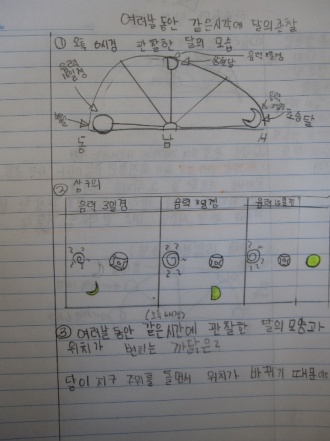 여러날 동안 같은시각에 달의관찰
① 오후 6시경 관찰한 달의 모습
음력
15일경
상현달
음력 8일경
음력
보름달
초승달
동
남
서
② 삼구의
음력 3일경
음력 8일경
(오후6시경)
③ 여러날 동안 같은시간에 관찰한 달의모양과
위치가 변하는 까닭은?
달이 지구 주위를 돌면서 위치가 바뀌기 때문이다